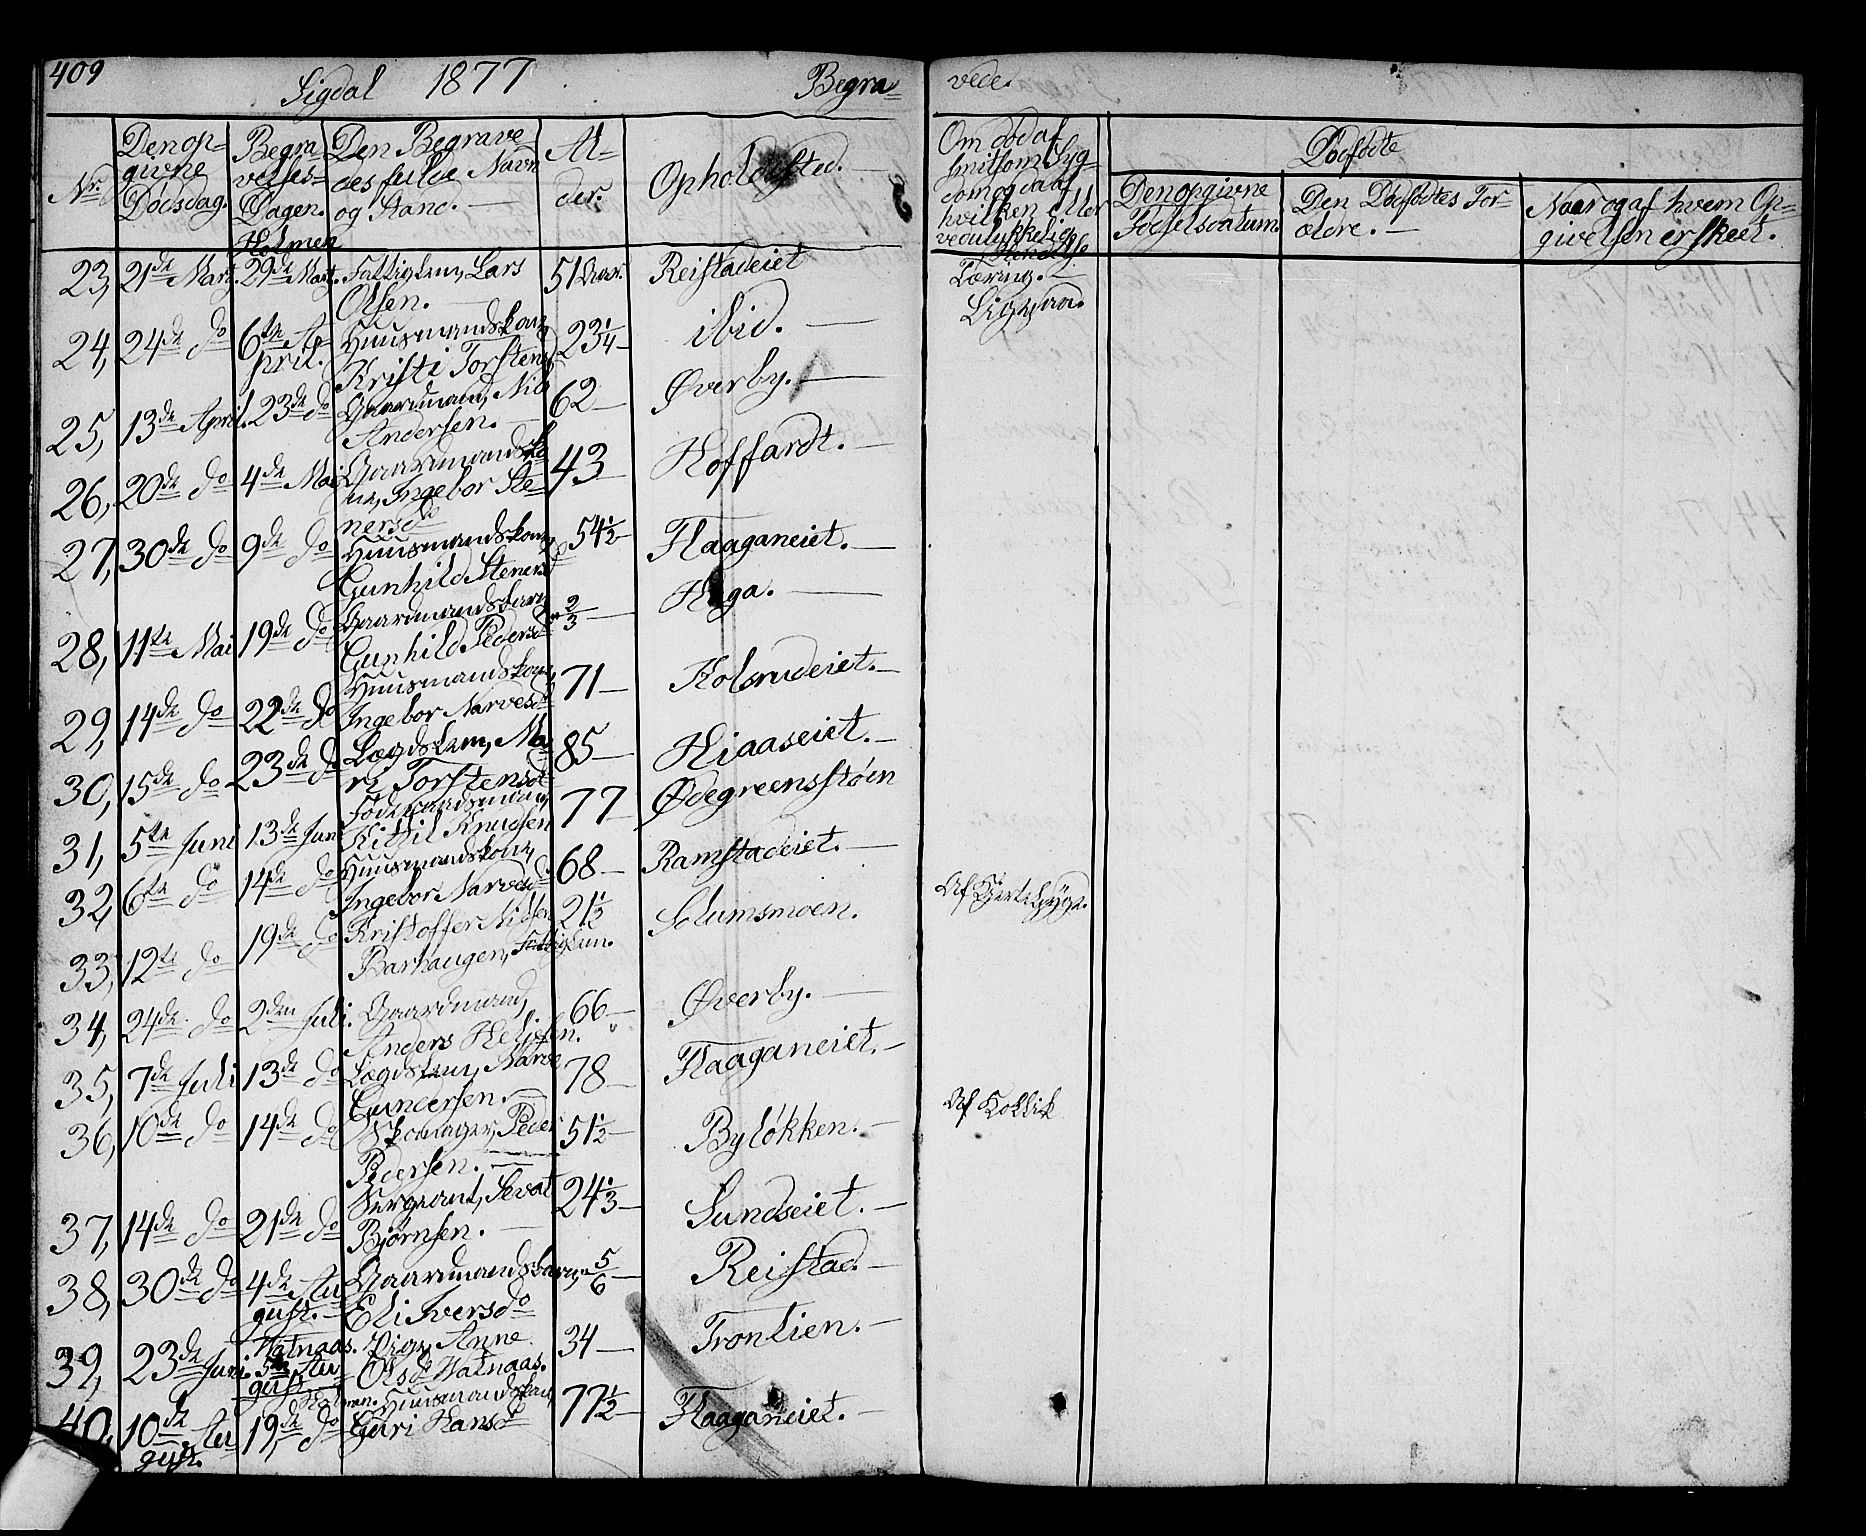 409
Sigdal 1877 Begra=
vede.
Nr.
Den op=
givne
Dødsdag.
Begra
velses=
Dagen.
Holmen
Den Begrave
des fulde Navn
og Stand. —
Al=
der.
Opholdssted. —
Om død af
smitsom Syg=
dom og da af
hvilken eller
ved ulykkelig
Hendelse
Dødfødte
Den opgivne
Fødselsdatum.
Den Dødfødtes For=
ældre. —
Naar og af hvem Op=
givelsen er skeet.
23, 21de Marz. 29de Marz. Fattiglem, Lars
Olsen. — 51 Aar. Reistadeiet Tæring. —
Ligeaa.
24, 24de do 6te A=
pril. Huusmandskone,
Kristi Torstensd 23 1/4 — ibid. —
25, 13de April. 23de do Gaardmand, Nils
Andersen. — 62 — Øverby. —
26, 20de do 4de Mai Gaardmandsko
ne, Ingebor Ste=
nersdo 43 — Hoffardt. —
27, 30de do 9de do Huusmandskone,
Gunhild Stenersd 54 1/2 — Flaaganeiet. —
28, 11te Mai 19de do Gaardmandsbarn,
Gunhild Pedersd " 2/3 — Haga. —
29, 14de do 22de do Huusmandskone,
Ingebor Narvesd 71 — Kolsrudeiet. —
30, 15de do 23de do Lægdslem, Ma=
ri Torstensd 85 — Hiaaseiet. —
31, 5te Juni 13de Juni Føderaadsmand,
Kittil Knudsen 77 Ødegreensstøen
32, 6te do 14de do Huusmandskone,
Ingebor Narvesd 68 — Ramstadeiet. —
33, 12te do 19de do Kristoffer Nilsen
Barhaugen, Fattiglem. 21 1/2 Solumsmoen. Af Kjertelsyge.
34, 24de do 2den Juli. Gaardmand,
Anders Helgesen. 66 — Øverby. —
35, 7de Juli 13de do Lægdslem, Narve
Gundersen. — 78 — Flaaganeiet. —
36, 10de do 14de do Skomager, Peder
Pedersen. — 51 1/2 — Byløkken. — Af Kollik
37, 14de do 21de do Sergeant, Sevat
Bjørnsen. — 24 1/3 — Sundseiet. —
38, 30de do 4de Au
gust. — Gaardmandsbarn,
Eli Iversdo " 5/6 — Reistad. —
39, 23de Juni. Vatnaas.
5te Au
gust Pige, Anne
Olsd Vatnaas. 34 — Tronlien. —
Holmen.
40, 10de Au
gust. 19de do Huusmandskone,
Guri Hansd 77 1/2 — Flaaganeiet. —